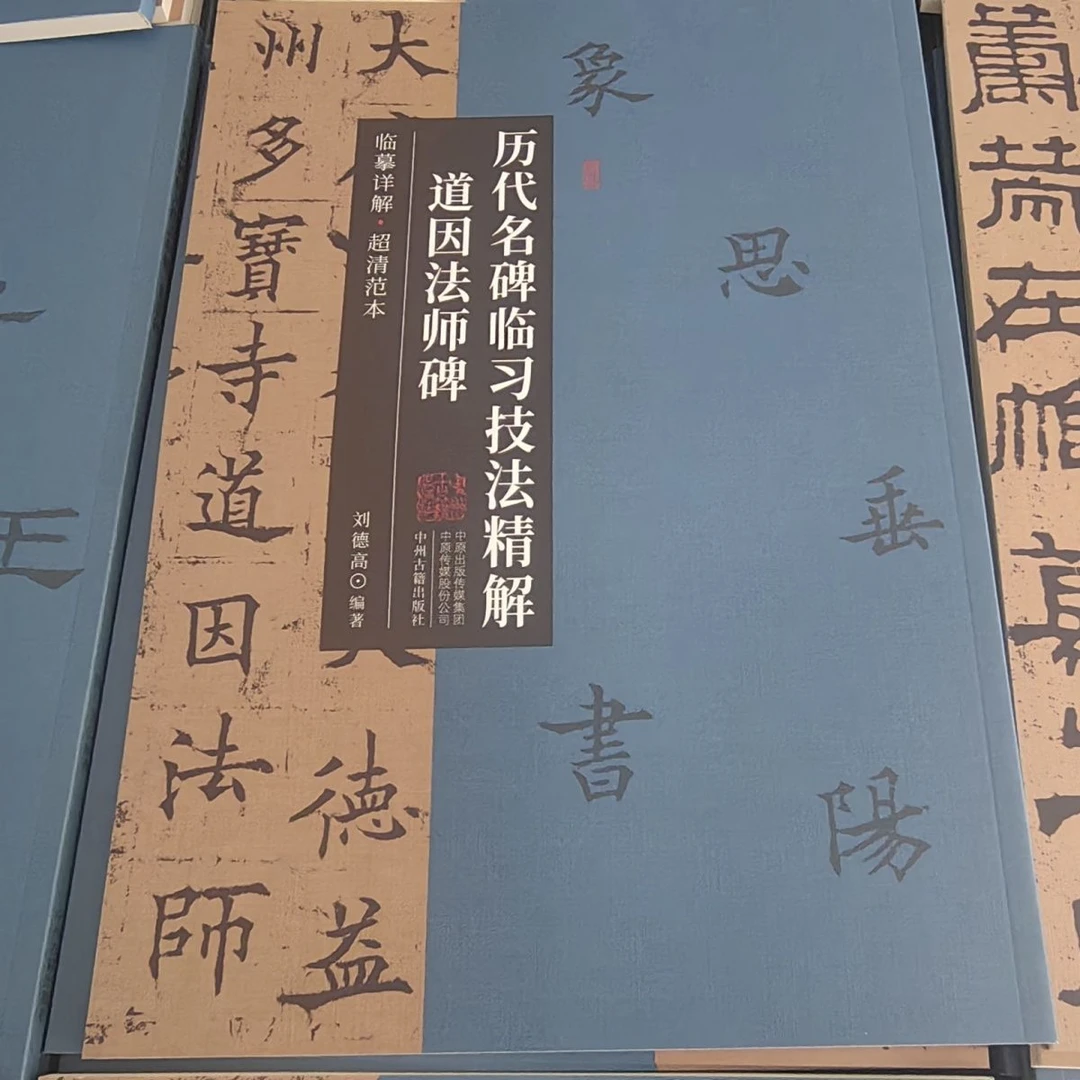 历代名碑临习技法精解
道因法师碑
临摹详解·超清范本
刘德高⊙编著
中原出版传媒集团
中原传媒股份公司
中州古籍出版社
象
思
垂
書
陽
大
德
益
州
多
寶
寺
道
因
法
師
在
王